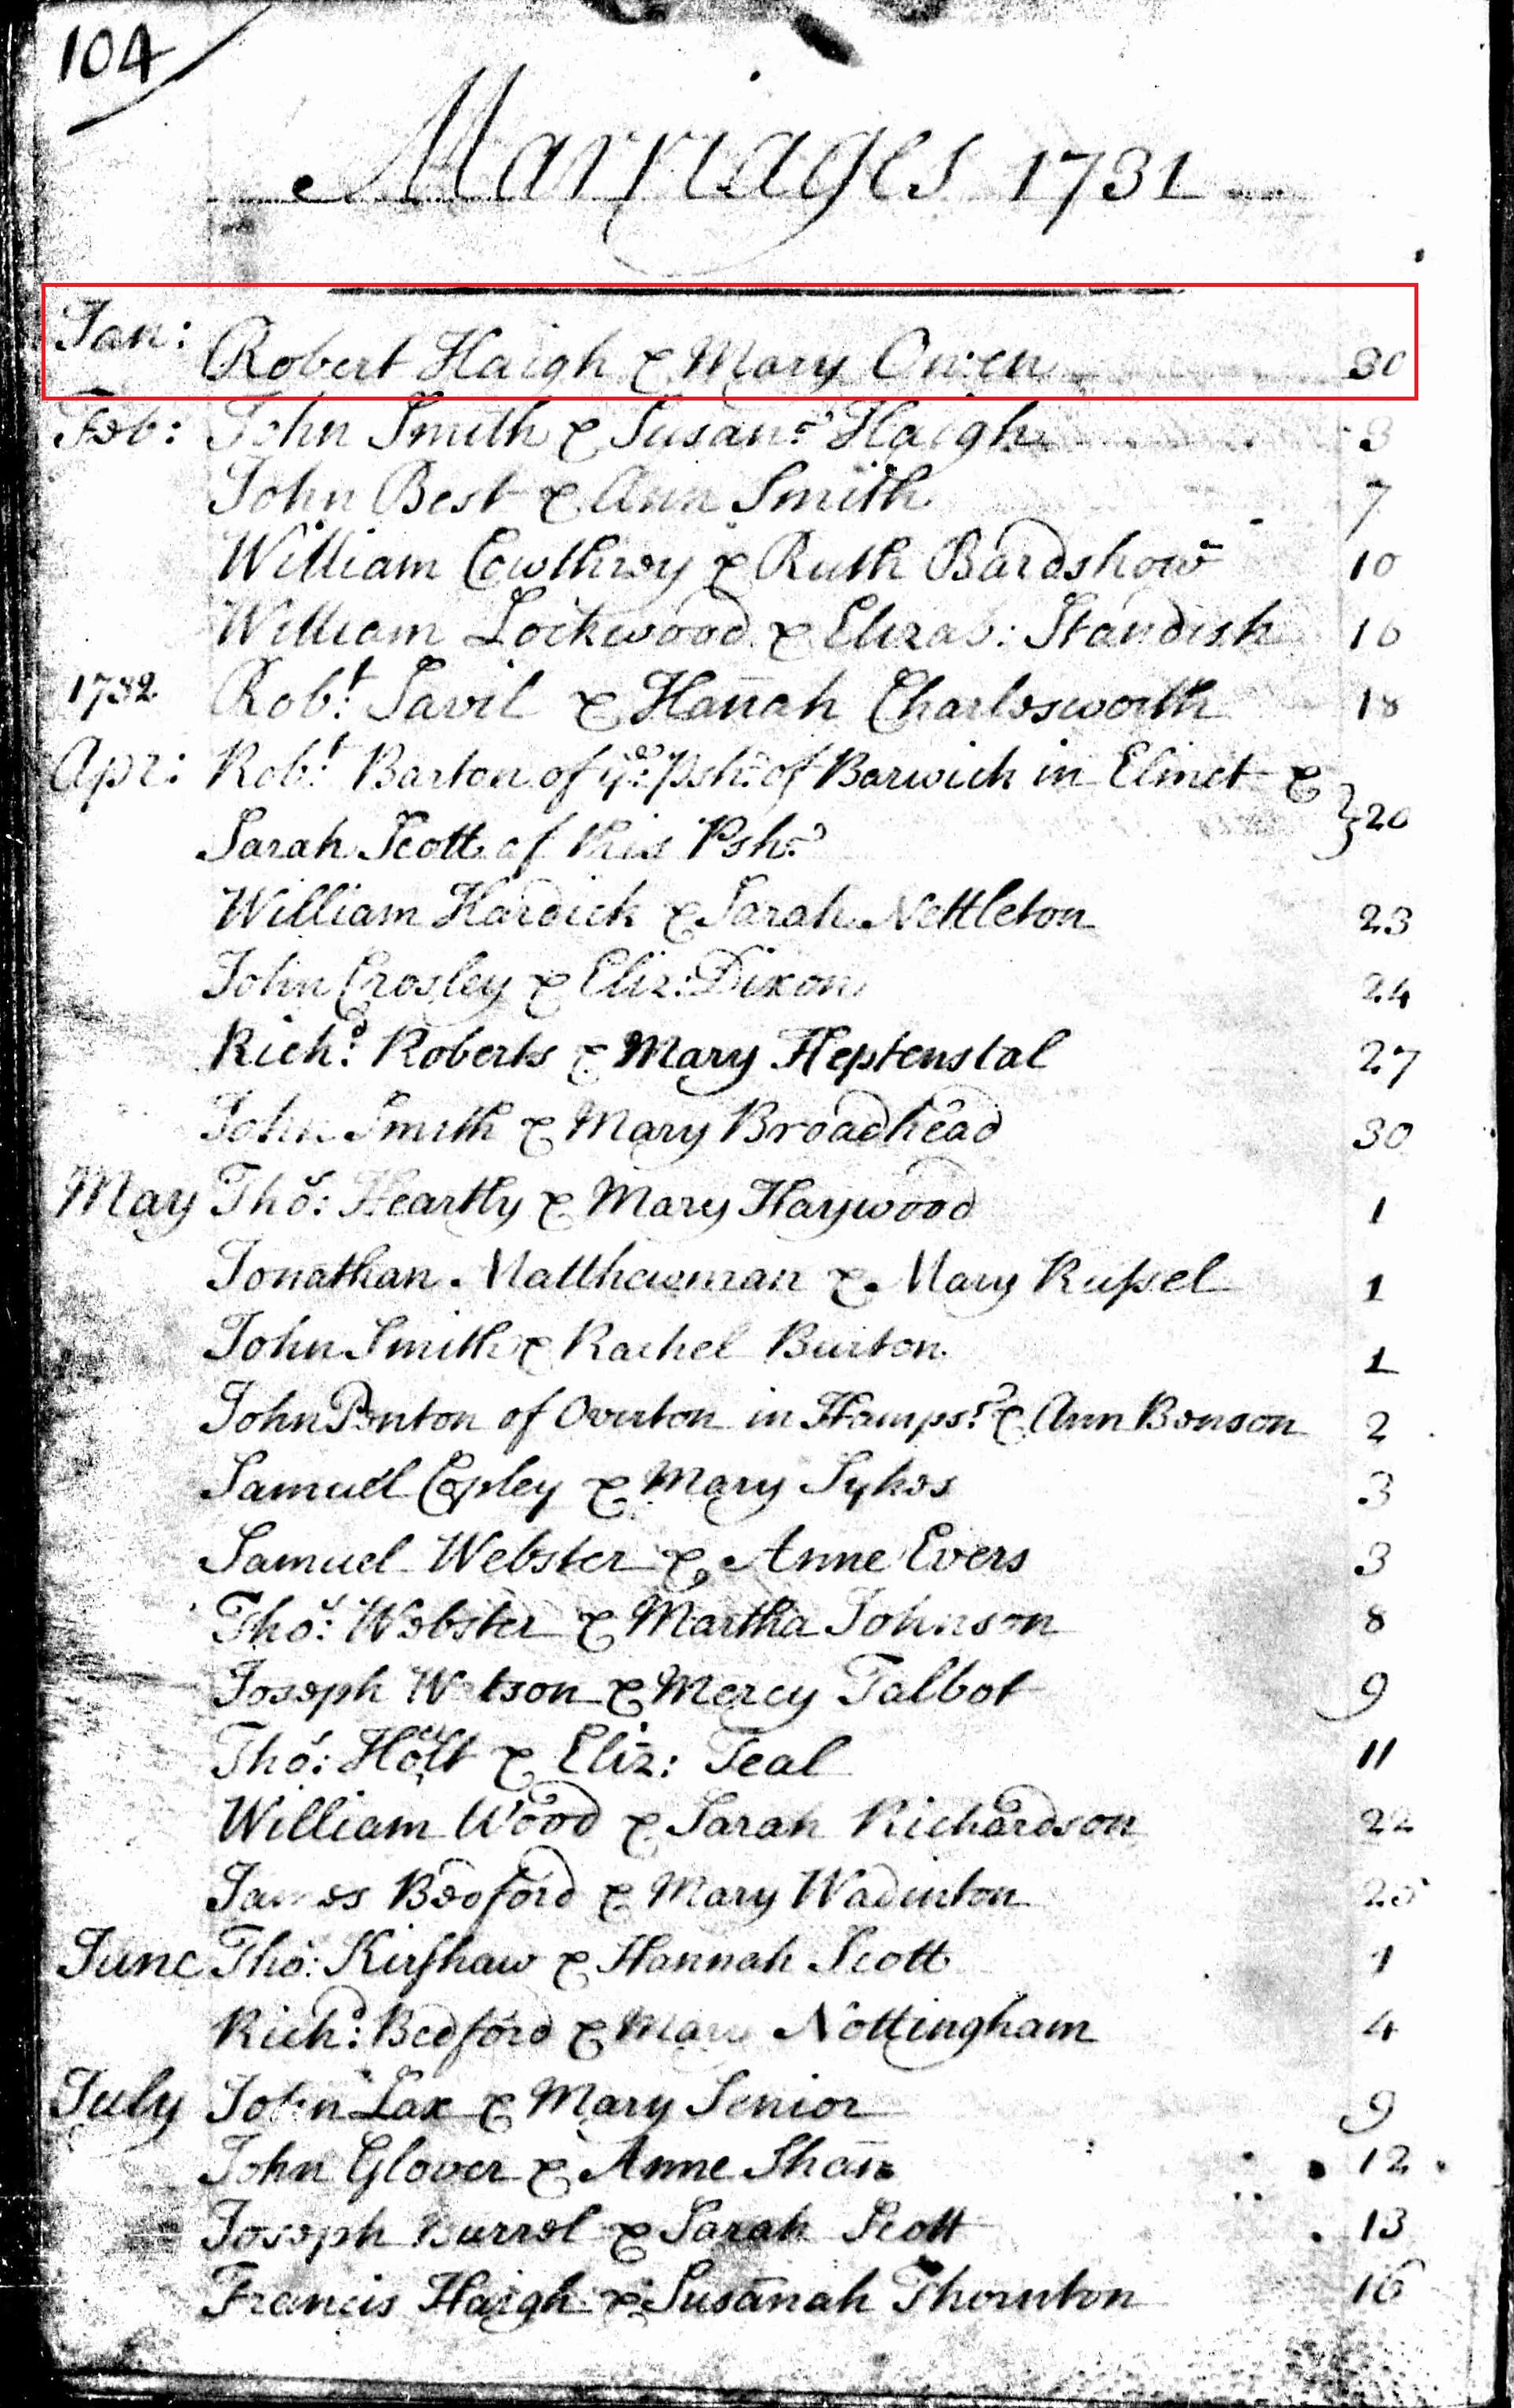 104
Marriages 1731
Jan: Robert Haigh & Mary Owen 30
Feb: John Smith & Susan:ᵃ Haigh 3
John Best & Ann Smith 7
William Cowthrey & Ruth Bardshow 10
William Lockwood & Elizab: Standish 16
1732 Rob:ᵗ Savil & Han̄ah Charlesworth 18
Apr: Rob:ᵗ Barton of yᵉ Psh:ᵉ of Barwick in Elmet &
Sarah Scott of this Psh:ᵉ } 20
William Hardick & Sarah Nettleton 23
John Crosley & Eliz: Dixon 24
Rich:ᵈ Roberts & Mary Heptenstal 27
John Smith & Mary Broadhead 30
May Tho: Heartly & Mary Haywood 1
Jonathan Matthewman & Mary Rußel 1
John Smith & Rachel Burton 1
John Penton of Overton in Hamps:ᵉ & Ann Benson 2
Samuel Copley & Mary Sykes 3
Samuel Webster & Anne Evers 3
Tho: Webster & Martha Johnson 8
Joseph Watson & Mercy Talbot 9
Tho: Holt & Eliz: Teal 11
William Wood & Sarah Richardson 22
James Bedford & Mary Wadinton
June Tho: Kirshaw & Hannah Scott 1
Rich:ᵈ Bedford & Mary Nottingham 4
July John Lax & Mary Senior 9
John Glover & Anne Shan̄ 12
Joseph Burrel & Sarah Scott 13
Francis Haigh & Susan̄ah Thornton 16